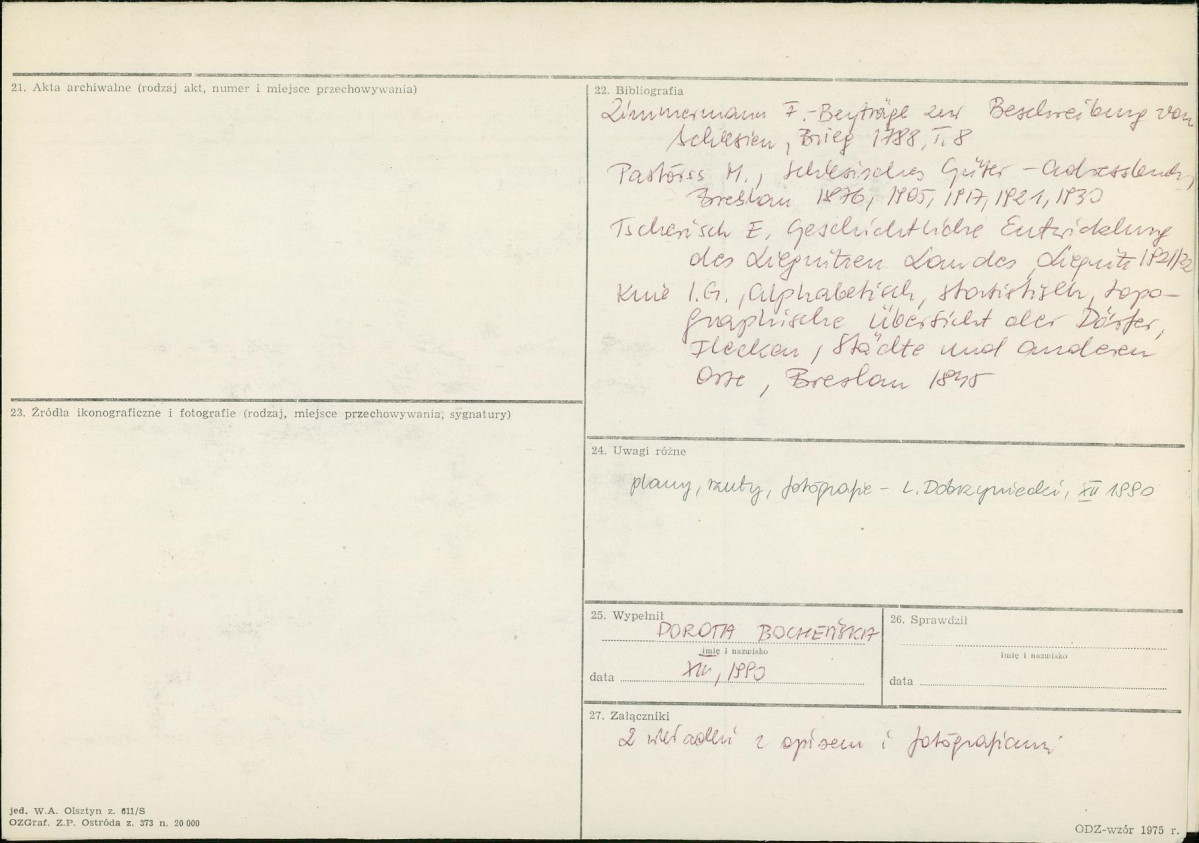 21. Akta archiwalne (rodzaj akt, numer i miejsce przechowywania)
22. Bibliografia
Zimmermann F.-Beyträge zur Beschreibung von
Schlesien, Brieg 1788, T.8
Pastörss M., Schlesisches Güter-Adressbuch,
Breslau 1876, 1905, 1917, 1921, 1930
Tscherisch E, Geschichtliche Entwicklung
des Liegnitzen Landes, Liegnitz 1921/22
Knie I.G., Alphabetisch, statistisch, topo-
graphische Übersicht der Dörfer,
Flecken, Städte und anderen
Orte, Breslau 1845
23. Źródła ikonograficzne i fotografie (rodzaj, miejsce przechowywania, sygnatury)
24. Uwagi różne
plany, rzuty, fotografie - L. Dobrzyniecki, XII 1990
25. Wypełnił
DOROTA BOCHEŃSKA
imię i nazwisko
data XII, 1990
26. Sprawdził
imię i nazwisko
data
27. Załączniki
2 wkładki z opisem i fotografiami
jed. W.A. Olsztyn z. 611/S
OZGraf. Z.P. Ostróda z. 373 n. 20 000
ODZ-wzór 1975 r.